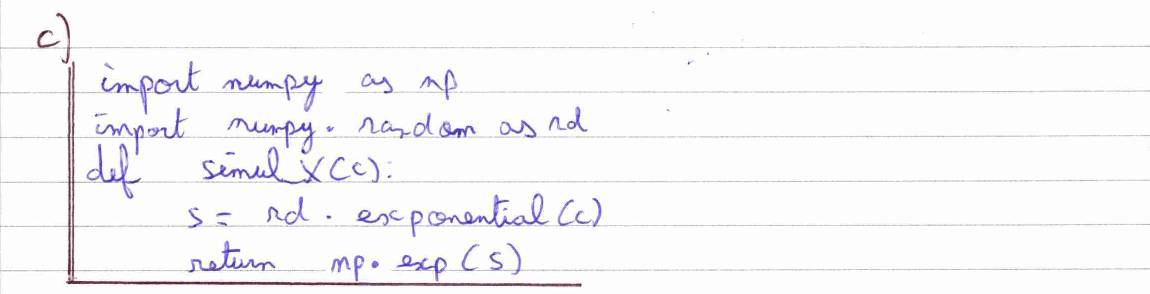 c)
import numpy as np
import numpy.random as rd
def simulX(c):
s = rd.exponential(c)
return np.exp(s)